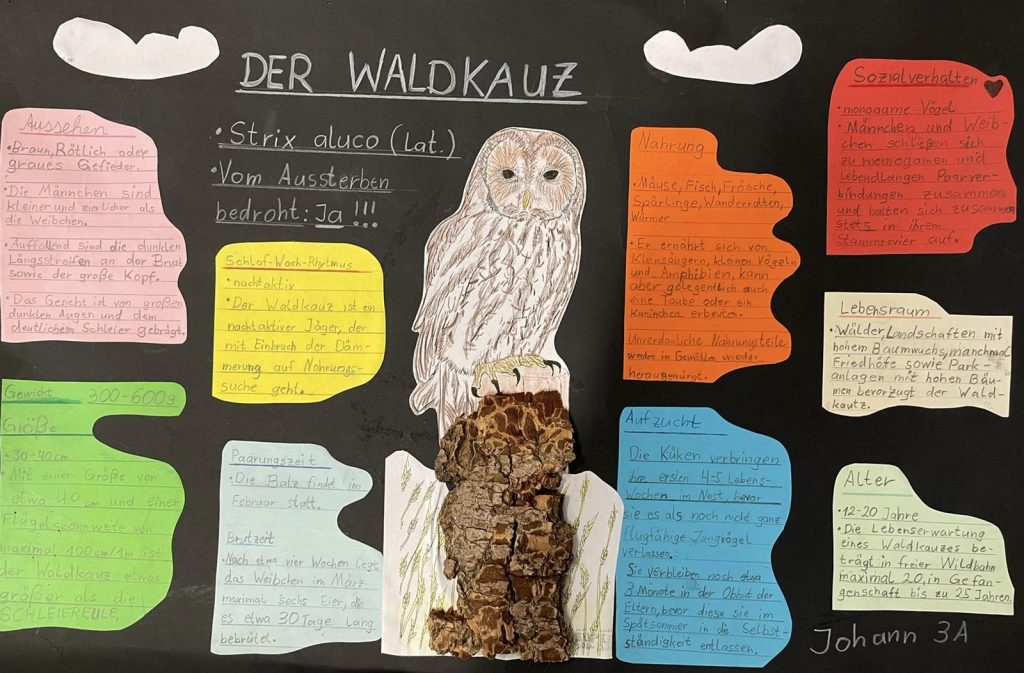 DER WALDKAUZ
• Strix aluco (Lat.)
• Vom Aussterben
bedroht: Ja !!!
Aussehen
• Braun, Rötlich oder
graues Gefieder.
• Die Männchen sind
kleiner und zierlicher als
die Weibchen.
• Auffallend sind die dunklen
Längsstreifen an der Brust
sowie der große Kopf.
• Das Gesicht ist von großen
dunklen Augen und dem
deutlichem Schleier geprägt.
Gewicht 300-600g
Größe
• 30-40cm
• Mit einer Größe von
etwa 40 cm und einer
Flügelspannweite von
maximal 100cm/1m ist
der Waldkauz etwas
größer als die
SCHLEIEREULE.
Schlaf-Wach-Rhytmus
• nachtaktiv
• Der Waldkauz ist ein
nachtaktiver Jäger, der
mit Einbruch der Däm-
merung auf Nahrungs-
suche geht.
Paarungszeit
• Die Balz findet im
Februar statt.
Brutzeit
• Nach etwa vier Wochen legt
das Weibchen im März
maximal sechs Eier, die
es etwa 30 Tage lang
bebrütet.
Nahrung
• Mäuse, Fisch, Frösche,
Spärlinge, Wanderratten,
Würmer
• Er ernährt sich von
Kleinsäugern, kleinen Vögeln
und Amphibien, kann
aber gelegentlich auch
eine Taube oder ein
Kaninchen erbeuten.
Unverdauliche Nahrungsteile
werden in Gewöllen wieder
herausgewürgt.
Aufzucht
Die Küken verbringen
ihre ersten 4-5 Lebens-
wochen im Nest, bevor
sie es als noch nicht ganz
flugfähige Jungvögel
verlassen.
Sie verbleiben noch etwa
3 Monate in der Obhut der
Eltern, bevor diese sie im
Spätsommer in die Selbst-
ständigkeit entlassen.
Sozialverhalten
• monogame Vögel
• Männchen und Weib-
chen schließen sich
zu monogamen und
lebendlangen Paarver-
bindungen zusammen
und halten sich zusammen
stets in ihrem
Stammrevier auf.
Lebensraum
• Wälder, Landschaften mit
hohem Baumwuchs, manchmal
Friedhöfe sowie Park-
anlagen mit hohen Bäu-
men bevorzugt der Wald-
kautz.
Alter
• 12-20 Jahre
• Die Lebenserwartung
eines Waldkauzes be-
trägt in freier Wildbahn
maximal 20, in Gefan-
genschaft bis zu 25 Jahren.
Johann 3A